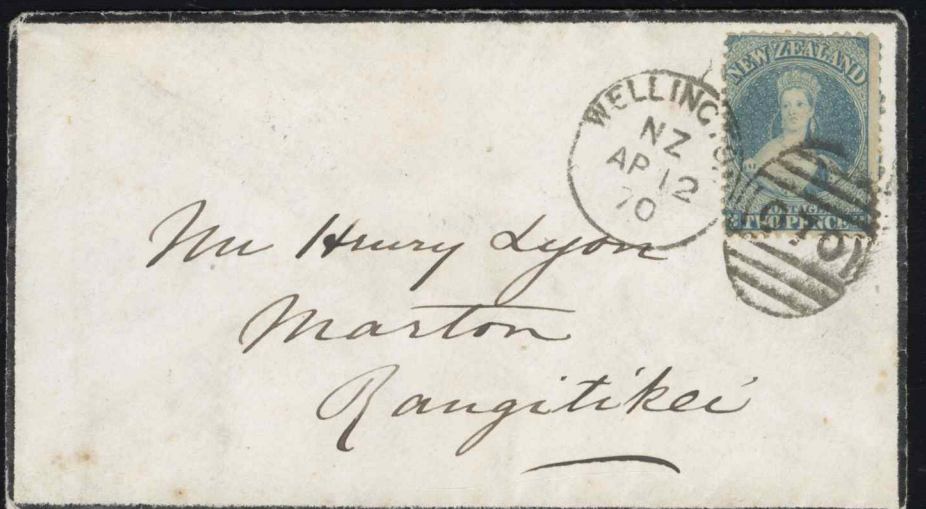 NEW ZEALAND
POSTAGE
TWO PENCE
WELLINGTON
NZ
AP 12
70
Mr Henry Lyon
Marton
Rangitikei